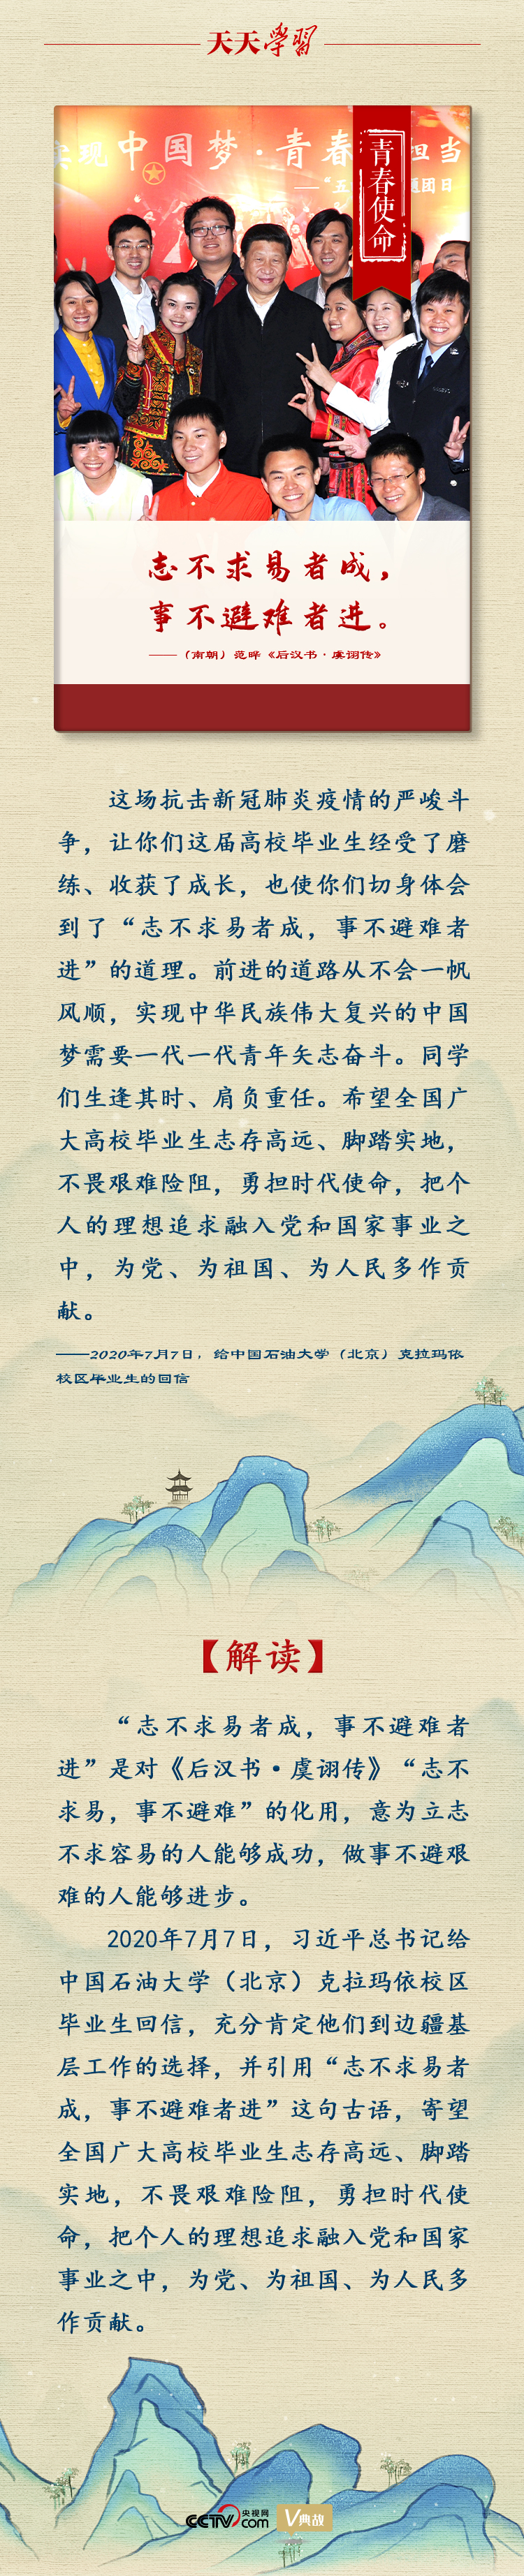 天天學習
实现中国梦·青春
担当
——“五
题团日
青春使命
志不求易者成，
事不避难者进。
——（南朝）范晔《后汉书·虞诩传》
这场抗击新冠肺炎疫情的严峻斗
争，让你们这届高校毕业生经受了磨
练、收获了成长，也使你们切身体会
到了“志不求易者成，事不避难者
进”的道理。前进的道路从不会一帆
风顺，实现中华民族伟大复兴的中国
梦需要一代一代青年矢志奋斗。同学
们生逢其时、肩负重任。希望全国广
大高校毕业生志存高远、脚踏实地，
不畏艰难险阻，勇担时代使命，把个
人的理想追求融入党和国家事业之
中，为党、为祖国、为人民多作贡
献。
——2020年7月7日，给中国石油大学（北京）克拉玛依
校区毕业生的回信
【解读】
“志不求易者成，事不避难者
进”是对《后汉书·虞诩传》“志不
求易，事不避难”的化用，意为立志
不求容易的人能够成功，做事不避艰
难的人能够进步。
2020年7月7日，习近平总书记给
中国石油大学（北京）克拉玛依校区
毕业生回信，充分肯定他们到边疆基
层工作的选择，并引用“志不求易者
成，事不避难者进”这句古语，寄望
全国广大高校毕业生志存高远、脚踏
实地，不畏艰难险阻，勇担时代使
命，把个人的理想追求融入党和国家
事业之中，为党、为祖国、为人民多
作贡献。
CCTV央视网.com V典故